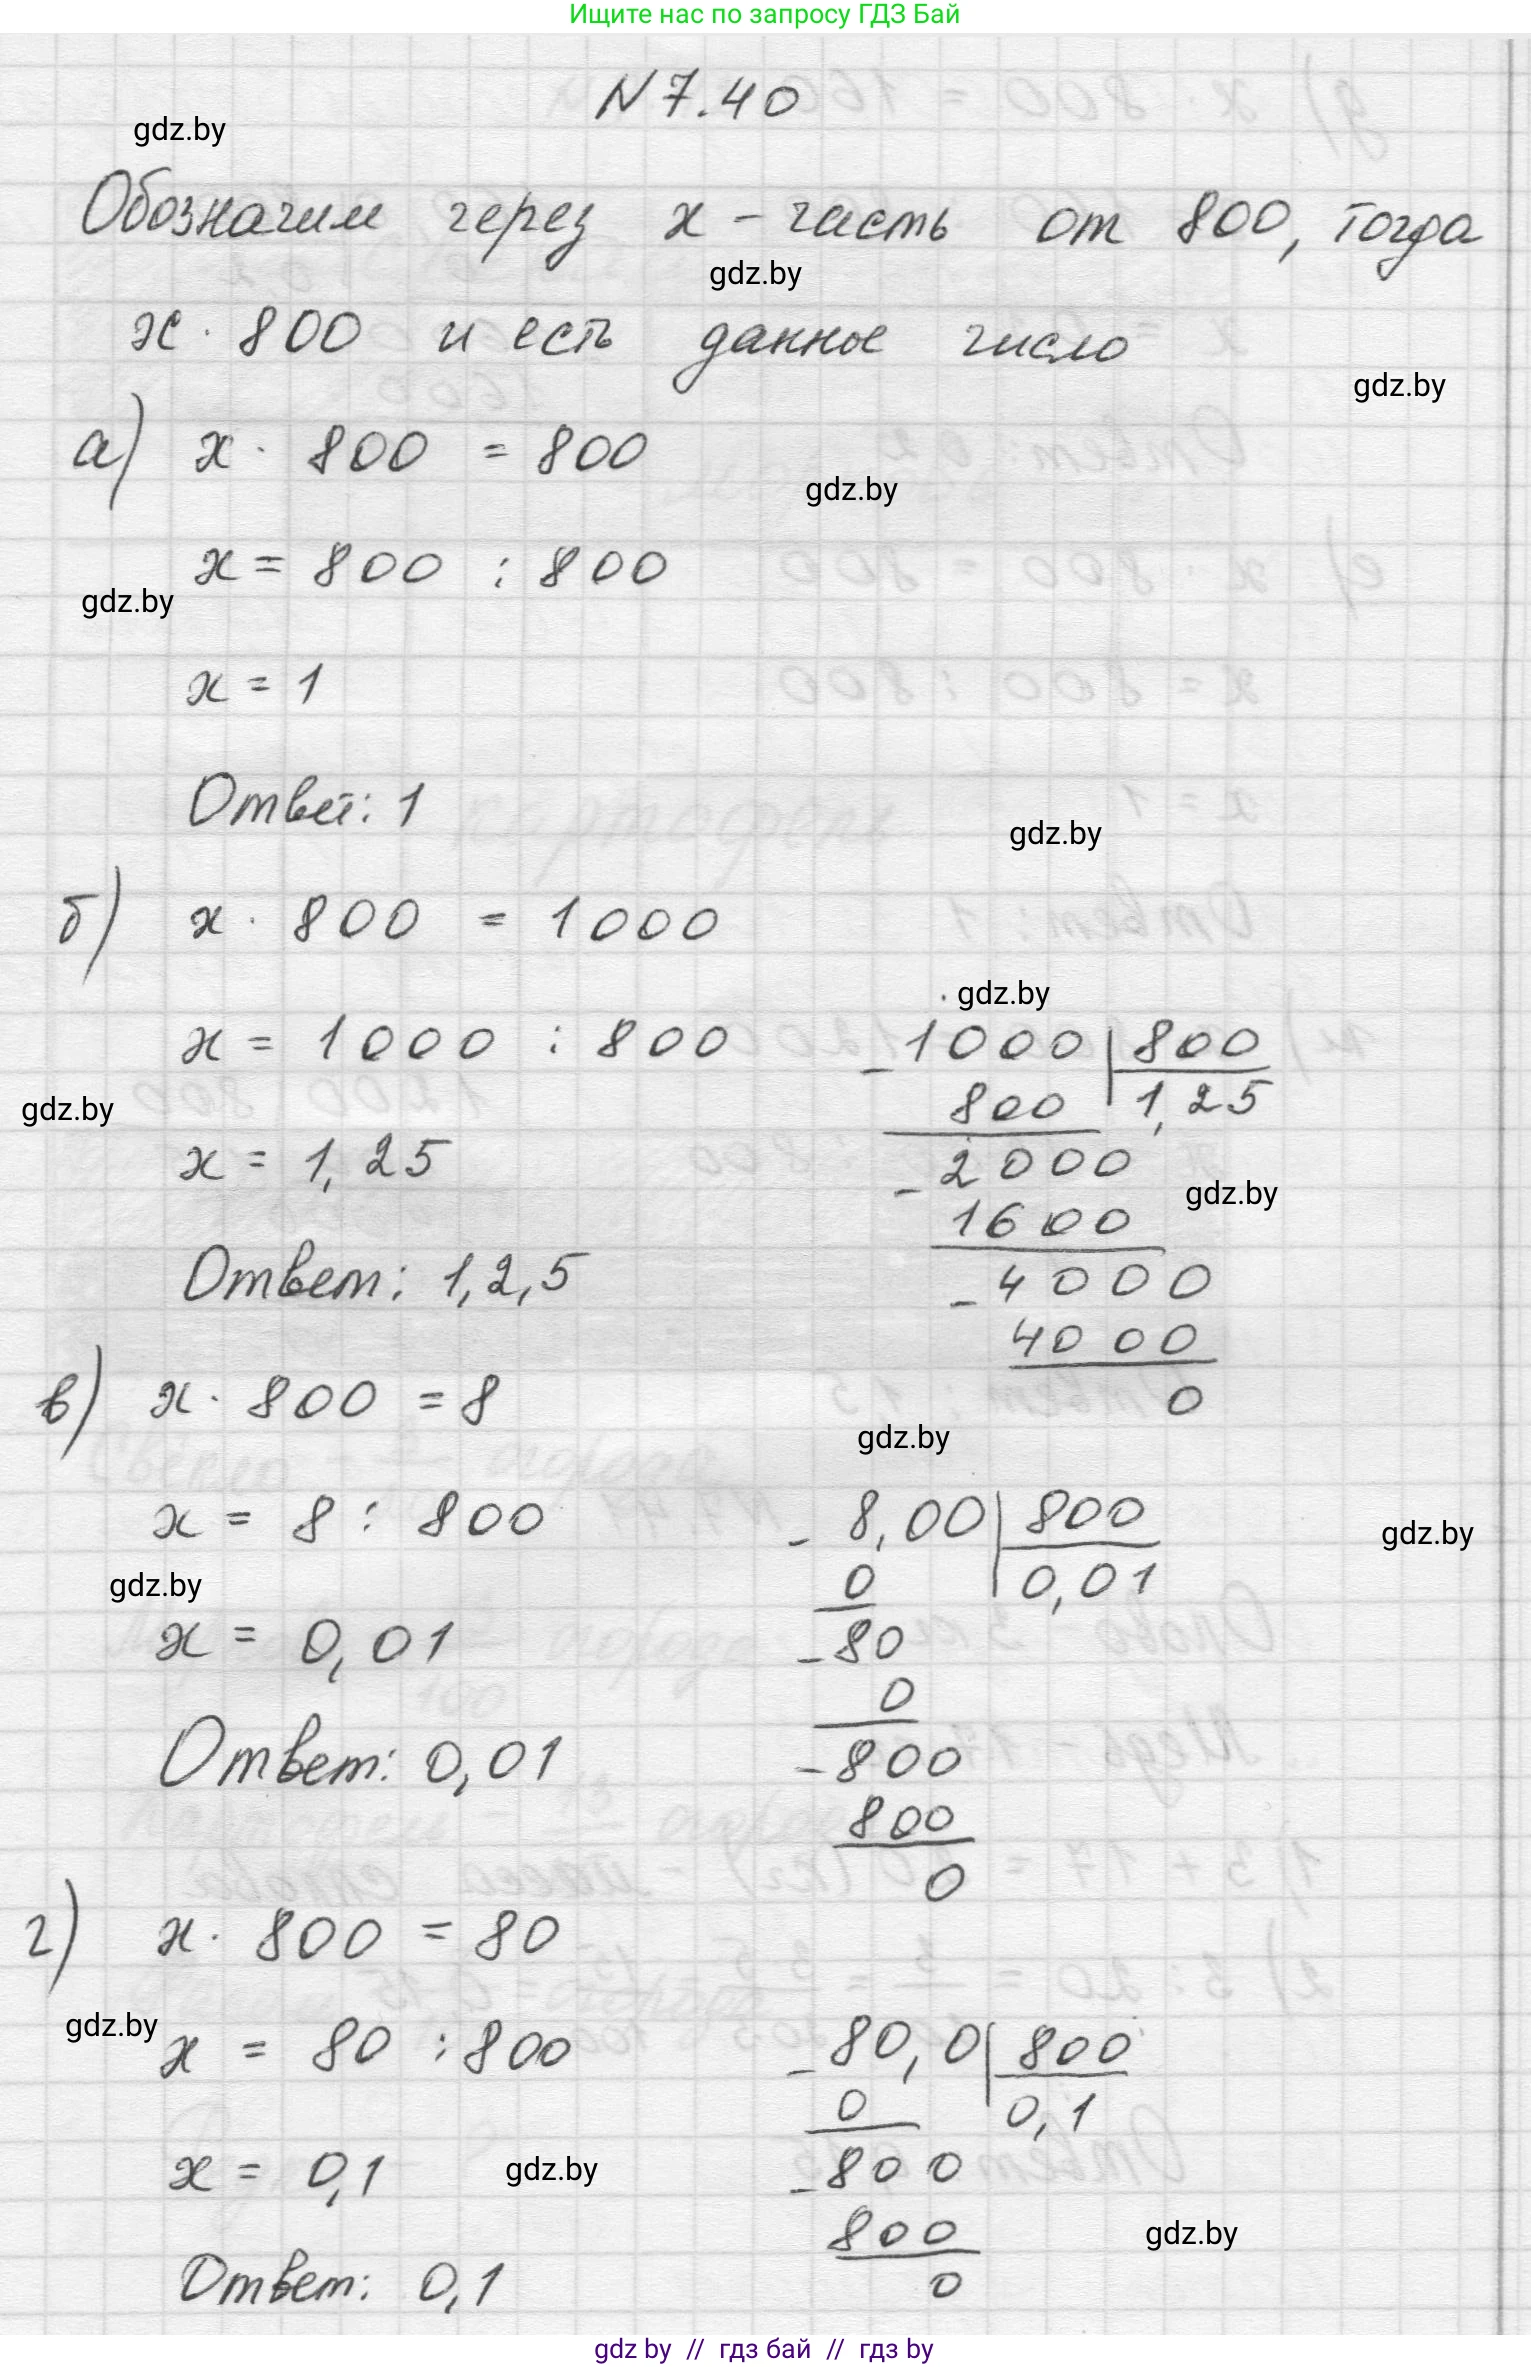 Ищите нас по запросу ГДЗ Бай
N 7.40
gdz.by
Обозначим через x - часть от 800, тогда
gdz.by
x · 800 и есть данное число
gdz.by
а) x · 800 = 800
gdz.by
x = 800 : 800
gdz.by
x = 1
Ответ: 1
gdz.by
б) x · 800 = 1000
gdz.by
x = 1000 : 800
- 1000 | 800
gdz.by
800 | 1,25
x = 1,25
- 2000
gdz.by
1600
Ответ: 1,2,5
- 4000
4000
0
в) x · 800 = 8
gdz.by
x = 8 : 800
- 8,00 | 800
gdz.by
0 | 0,01
gdz.by
x = 0,01
- 80
0
Ответ: 0,01
- 800
800
0
г) x · 800 = 80
gdz.by
x = 80 : 800
- 80,0 | 800
0 | 0,1
x = 0,1
gdz.by
- 800
800
gdz.by
0
Ответ: 0,1
gdz by // гдз бай // гдз by